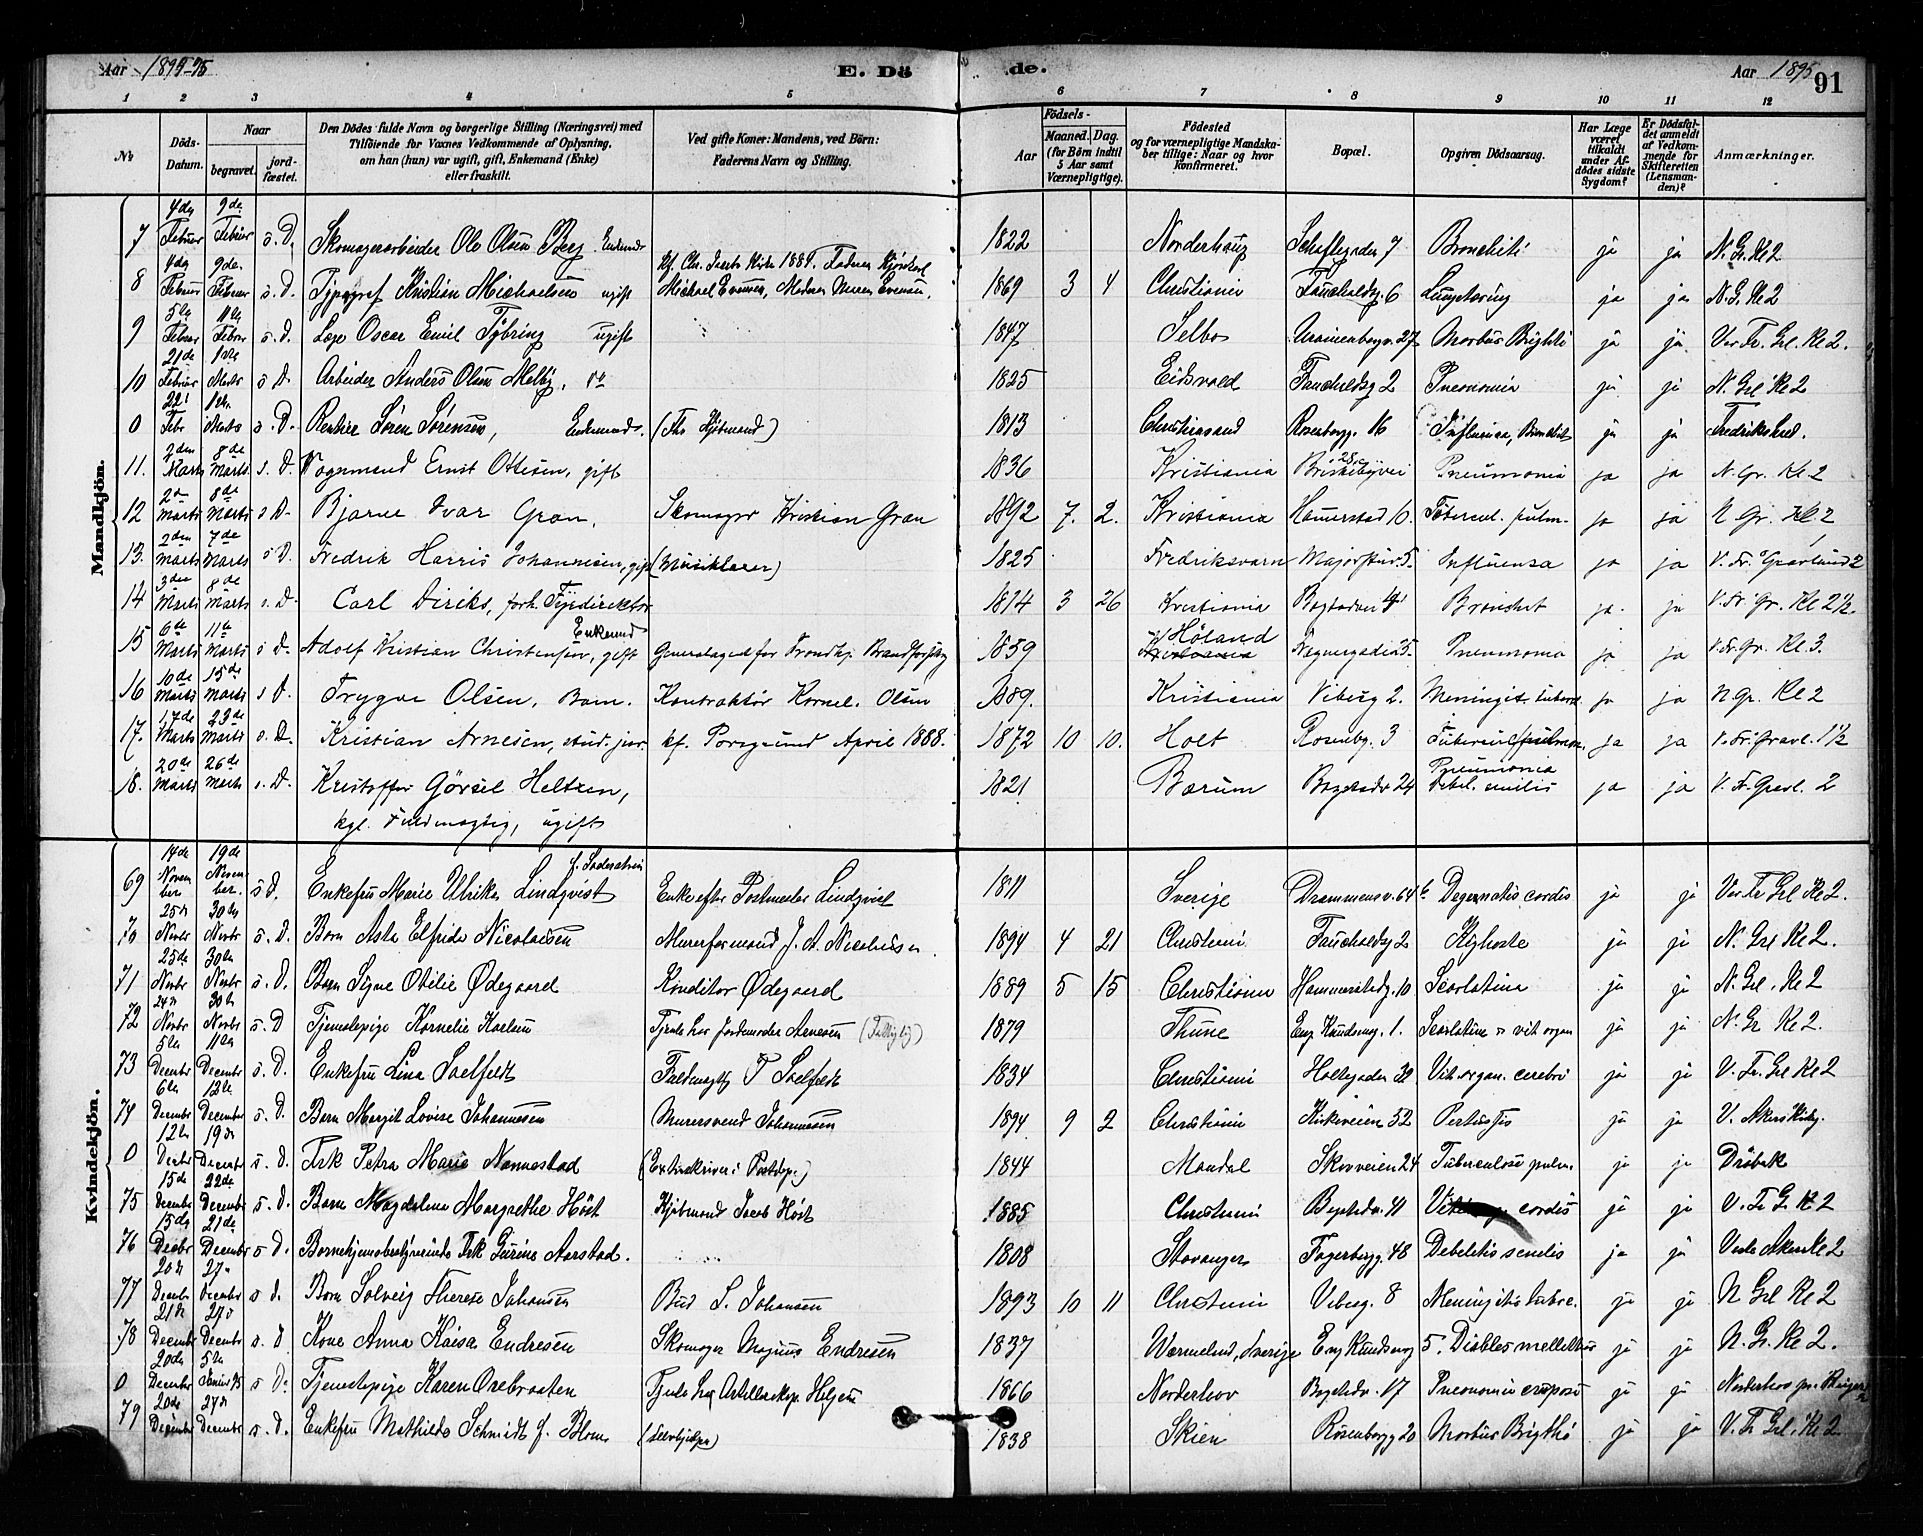 Aar 1894-95 E. Dö de. Aar 1895 91
1 2 3 4 5 6 7 8 9 10 11 12
№ Döds-Datum. Naar begravet. jord-fæstet. Den Dödes fulde Navn og borgerlige Stilling (Næringsvei) med Tilföiende for Voxnes Vedkommende af Oplysning, om han (hun) var ugift, gift, Enkemand (Enke) eller fraskilt. Ved gifte Koner: Mandens, ved Börn: Faderens Navn og Stilling. Födsels- Aar Maaned. Dag. (for Börn indtil 5 Aar samt Værnepligtige). Födested og for værnepligtige Mandskaber tillige: Naar og hvor Konfirmeret. Bopæl. Opgiven Dödsaarsag. Har Læge været tilkaldt under Afdödes sidste Sygdom? Er Dödsfaldet anmeldt af Vedkommende for Skifteretten (Lensmanden)? Anmærkninger.
Mandkjön.
7 4de Februar 9de Februar s. D. Skomagerarbeider Ole Olsen Berg 1822 Norderhaug 7 Bronchiti ja ja N. Gr. Kl 2
8 4de Februar 9de Februar s. D. Typograf Kristian Michaelsen ugift 1869 3 4 Christiania Faucholdsg. 6 Lungetæring ja ja N. G. Kl 2
9 5te Februar 11te Februar s. D. Læge Oscar Emil Tybring ugift 1847 Selbo Uranienborgv. 27 Morbus Brighti ja ja Vor Fr. Grl. Kl 2.
10 21de Februar 1ste Marts s D. Arbeider Anders Olsen Melby, 1825 Eidsvold Faucholdsg 2 Pneomonia ja ja N. Grl Kl 2
0 22de Febr 1ste Marts s. D. Rentier Sören Sörensen, Enkemand. (Fhv Kjöbmand) 1813 Christiansand Rosenborgg. 16 Influensa, Bronchit ja ja Fredrikshald.
11. 2den Marts 8de Marts s. D. Vognmand Ernst Ottesen, gift 1836 Kristiania Briskebyvei 28 Pneumonia ja ja N. Gr. Kl. 2
12 2den Marts 8de Marts s D. Bjarne Ivar Gran, Skomager Kristian Gran 1892 7. 2. Kristiania 10. Tubercul. pulm. ja ja N Gr. Kl 2
13. 2den Marts 7de Marts s D. Fredrik Harris Johannesen, gift (Musiklærer) 1825 Fredriksværn Majorstuv. 5. Influensa ja ja V. Fr. Gravlund 2
14 3die Marts 8de Marts s. D. Carl Diriks, forh. Fyrdirektør Enkemd 1814 3 26 Kristiania Bronchit ja. ja V. Fr. Gr. Kl 2½
15 6te Marts 11te Marts s D. Adolf Kristian Christensen, gift Generalagent for Trondhj. Brandforsikr 1859 Höland Pneumonia ja ja V. Fr. Gr. Kl. 3.
16 10de Marts 15de Marts s D. Trygve Olsen, Barn. Kontraktör Kornel. Olsen 1889. Kristiania Vibesg 2. Meningit. tuberc. ja ja N Gr. Kl 2
17. 17de Marts 23de Marts s. D. Kristian Arnesen, stud. jur. kf. Porsgrund April 1888. 1872 10 10. Holt Rosenbg. 3 Tubercul pulmon. ja ja V. Fr. Gravl. 1½
18. 20de Marts 26de Marts s. D. Kristoffer Görvel Heltzen, 1821 Bærum Bogstadv 24 Pneumonia Debil. senilis ja ja V. Fr. Gravl. 2
kgl. Fuldmægtig, ugift
Kvindekjön.
69 14de November 19de November s D. Enkefru Marie Ulrika Lindqvist Enke efter Postmester Lindqvist 1811 Sverige Drammensv. 64 b Degeneratis cordis ja ja Vor Fr Grl Kl 2.
70 25de Novbr 30te Novbr s. D. Barn Asta Elfrida Nicolaisen Murerformand J. A. Nicolaisen. 1894 4 21 Christiania Faucholdsg 2 Kighoste ja ja N. Grl Kl 2.
71 25de Novbr 30te Novbr s. D. Barn Signe Otilie Ødegaard Konditor Ødegaard 1889 5 15 Christiania Hammerstadg. 10 Scarlatina ja ja N. Grl. Kl 2
72 24de Novbr 30te Novbr s. D Tjenestepige Kornelie Karlsen Tjente hos Jordemoder Arnesen 1879 Thune Eug. Kaadsensg. 1. Scarlatina ja ja N. Gr Kl 2.
73 5te December 11te December s. D. Enkefru Lina Saelfeldt Fuldmægtig P Saelfeldt 1834 Christiania Holtegaden 32 Vit. organ. cerebri ja ja V. Fr. Grl Kl 2
74 6te December 12te December s. D. Barn Margit Lovise Johannessen Murersvend Johannessen 1894 9 2 Christiania Kirkeveien 52 Pertussis ja ja V. Akers Kirkg.
0 12te Decbr 19de December s. D. Frk Petra Marie Nannestad 1844 Mandal Skovveien 24 Tuberculose pulm. ja ja Dröbak
75 15de December 22de December s. D. Barn Magdalena Margrethe Höst Kjöbmand Jacob Höst 1885 Christiania Bogstadv. 41 cordis ja ja V. Fr G Kl 2
76 15de Decbr 21de December s D. Börnehjemsbestyrerinde Frk Gurine Aarstad. 1808 Stavanger Fagerborgg. 48 Debilitis senilis ja ja Vestre Aker Kl 2
77 20de December 27de December s d. Barn Solveig Therese Johansen Bud S. Johansen 1893 10 11 Christiania Vibesg. 8 Meningitis tuberc. ja ja N Grl Kl 2
78 21de December 27de December s. D Kone Anna Kaisa Endresen Skomager Magnus Endresen 1837 Wermeland, Sverige 5. Diabtes mellettus ja ja N. Gr. Kl 2.
0 20de December 5te Januar 95 s D. Tjenestepige Karen Orebraaten 1866 Norderhov Bogstadv. 17 Pneomonia cruposa ja ja Norderhov
79 20de December 27de December s. D. Enkefru Mathilde Schmidt f. Blom 1838 Skien Rosenborgg 20 Morbus Brigthi ja ja V. Fr Grl. Kl 2